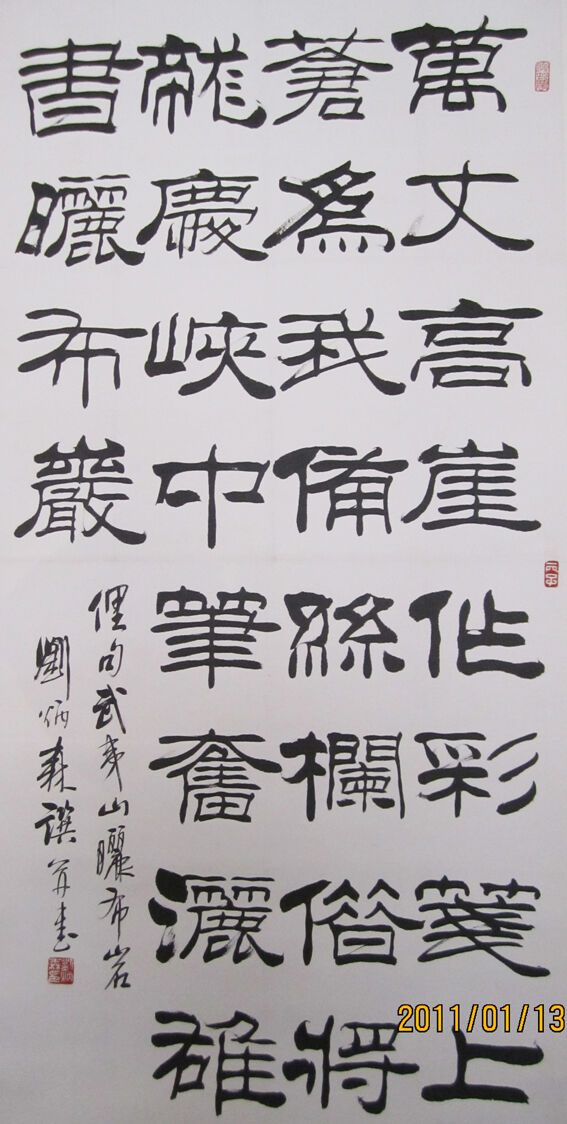 萬丈高崖作彩箋上
蒼爲我備絲欄借將
龍慶峽中筆奮灑雄
書曬布巖
俚句武夷山曬布岩
劉炳森譔并書
2011/01/13